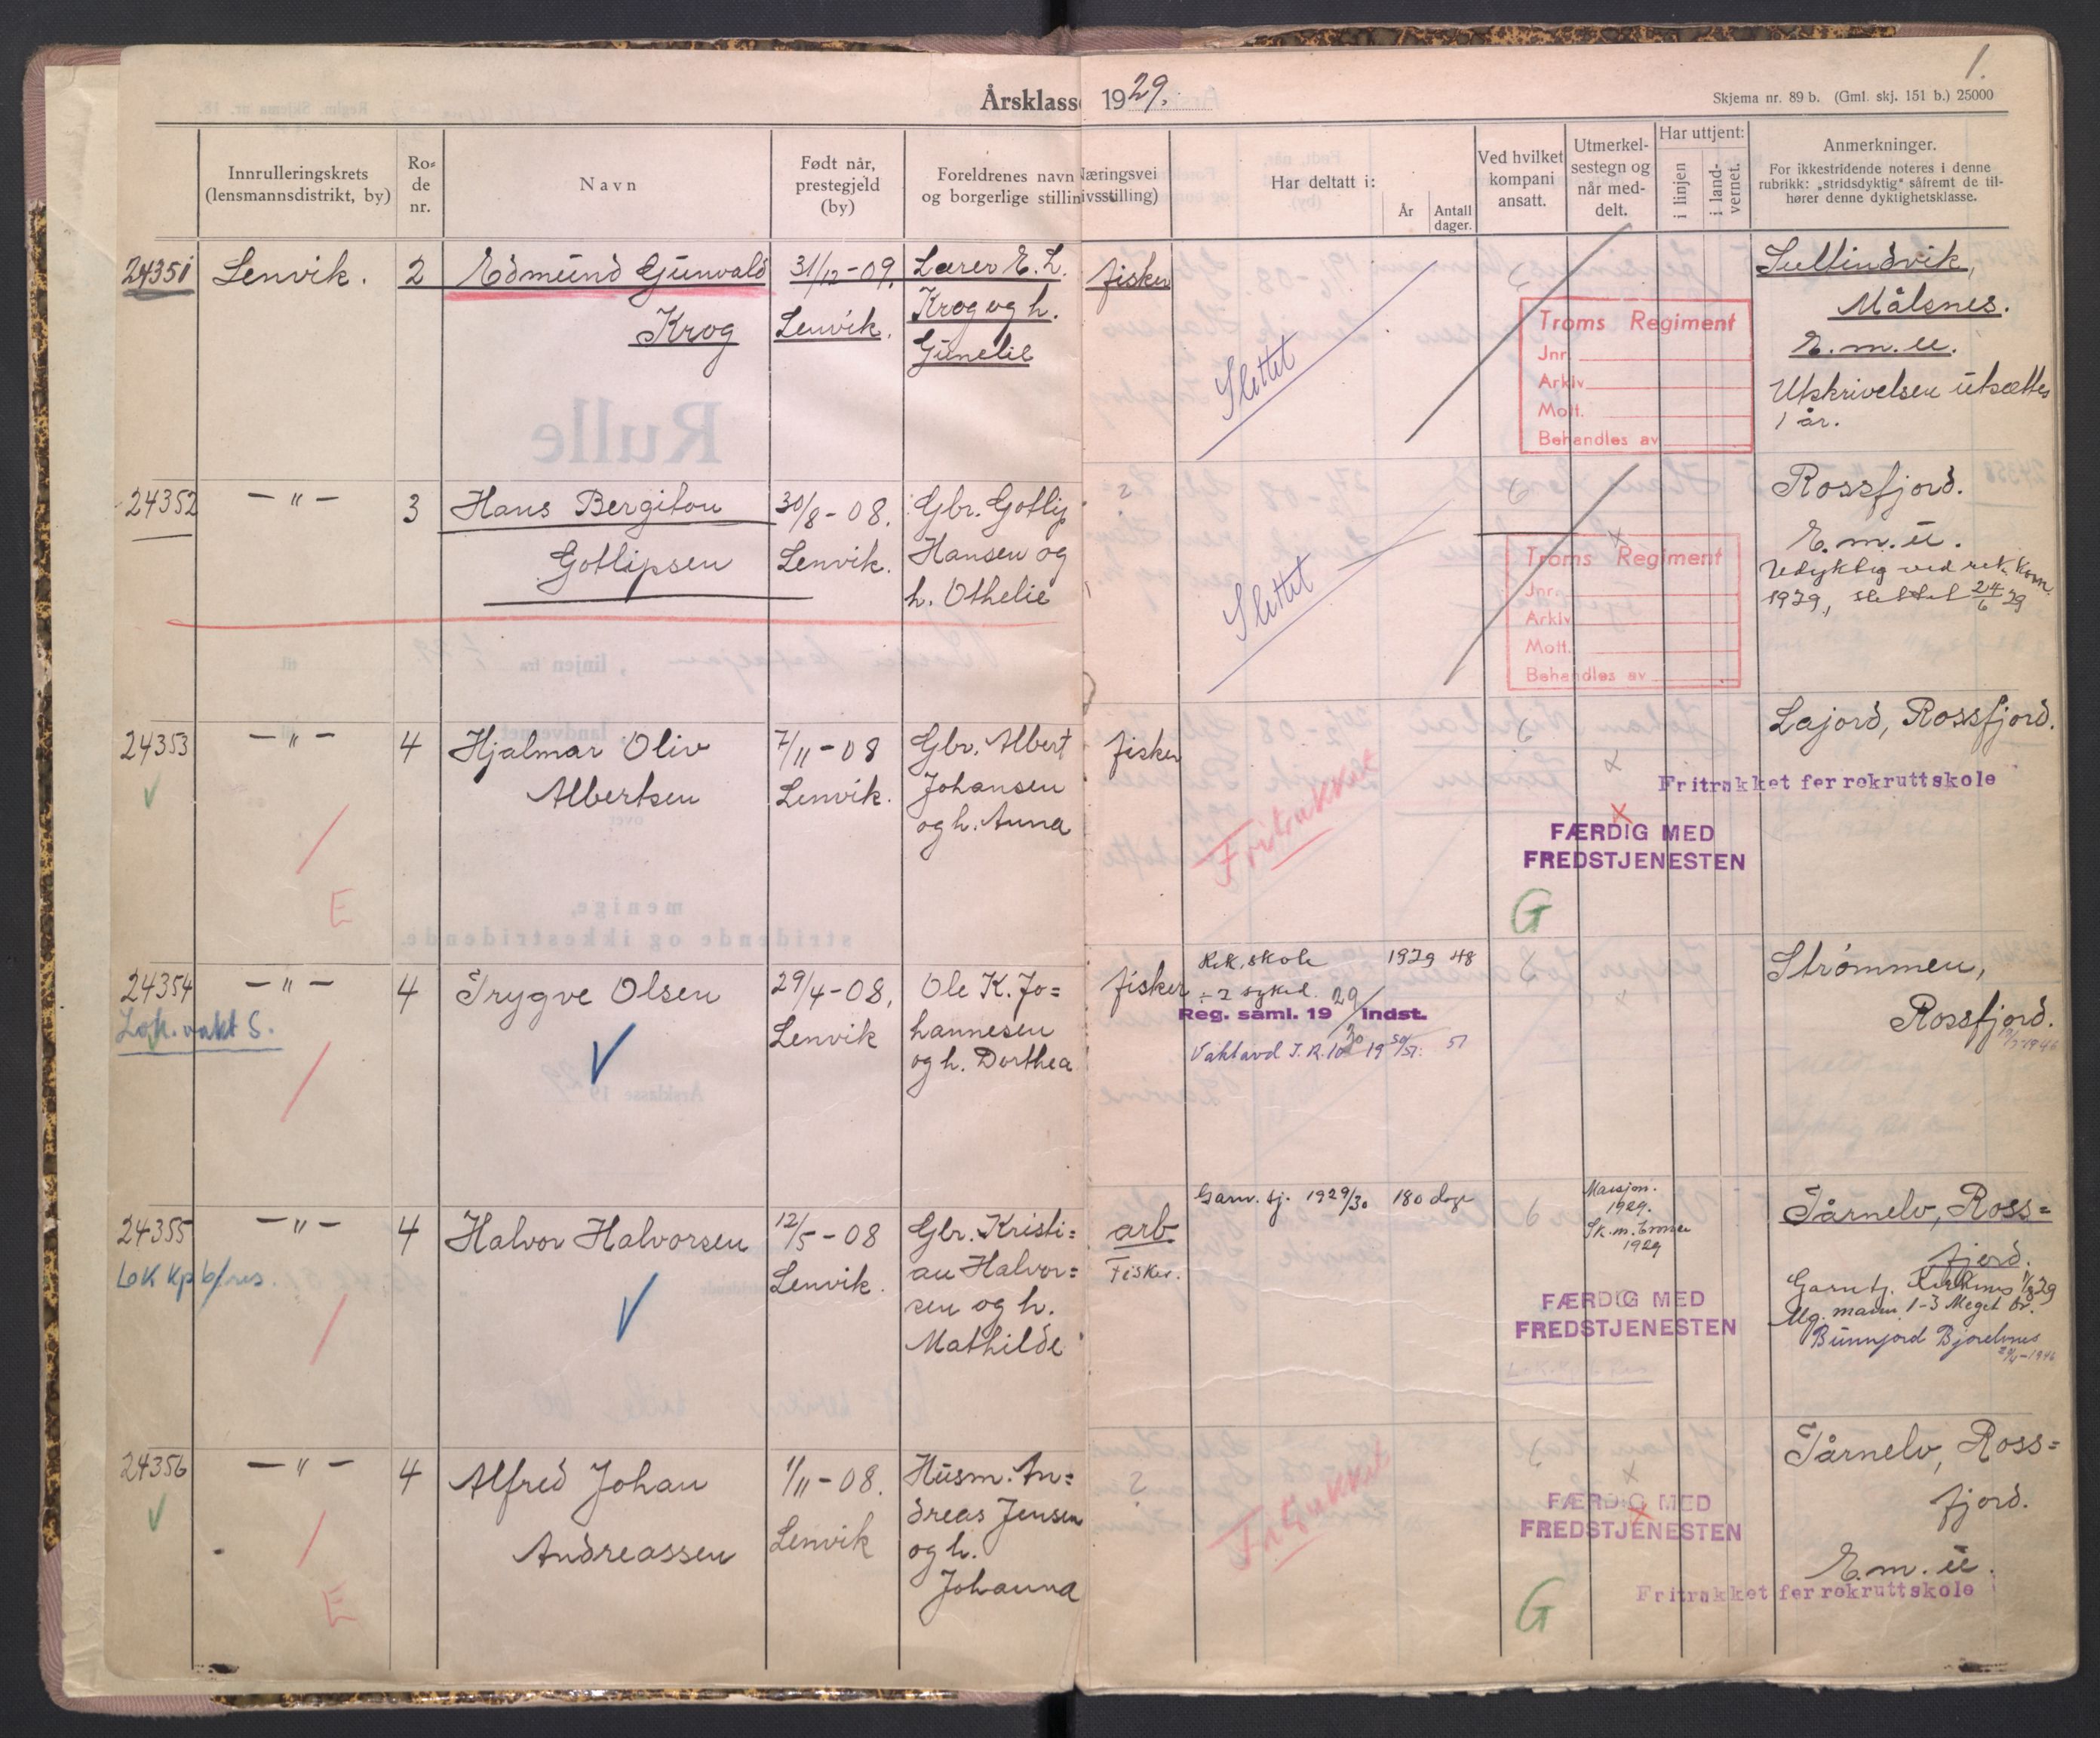 1.
Årsklasse 1929.
Skjema nr. 89 b. (Gml. skj. 151 b.) 25000
Innrulleringskrets (lensmannsdistrikt, by)
Ro-de nr.
Navn
Født når, prestegjeld (by)
Foreldrenes navn og borgerlige stilling
Næringsvei
ivsstilling)
Har deltatt i:
År
Antall dager.
Ved hvilket kompani ansatt.
Utmerkel-sestegn og når med-delt.
Har uttjent:
i linjen
i land-vernet.
Anmerkninger.
For ikkestridende noteres i denne
rubrikk: „stridsdyktig" såfremt de til-
hører denne dyktighetsklasse.
24351 Lenvik. 2 Edmund Gunvald 31/12-09. Lærer E. L. fisker
Krog Lenvik. Krog og h.
Gunelie
Slettet
6
Troms Regiment
Jnr.
Arkiv
Mott.
Behandles av
Sultindvik,
Målsnes.
E.m.u.
Utskrivelsen utsættes
1 år.
24352 — " — 3 Hans Bergiton 30/8-08. Gbr. Gotlip
Gotlipsen Lenvik. Hansen og
h. Othelie
Slettet
6
Troms Regiment
Jnr.
Arkiv
Mott.
Behandles av
Rossfjord.
E.m.u.
Udyktig ved rek. kom.
1929, slettet 24/6 29
24353 — " — 4 Hjalmar Oliv 7/11-08 Gbr. Albert fisker
Albertsen Lenvik. Johansen
og h. Anna
E
Fritrukket
6
Lajord, Rossfjord.
Fritrukket før rekruttskole
FÆRDIG MED
FREDSTJENESTEN
G
24354 — " — 4 Trygve Olsen 29/4-08, Ole K. Jo= fisker
Lok. vakt S. Lenvik hannesen
og h. Dorthea
Rek. skole 1929 48
÷ 2 sykd.
Reg. saml. 19 29/30 indst.
Vaktavd I.R.16 19 50/51: 51
6
Strømmen,
Rossfjord.
24355 — " — 4 Halvor Halvorsen 12/5-08 Gbr. Kristi= arb
Lok Kp 6/res. Lenvik. an Halvor= Fisker.
sen og h.
Mathilde
Garn. tj. 1929/30 180 dage
6
1929.
1929
FÆRDIG MED
FREDSTJENESTEN
Tårnelv, Ross=
fjord.
Garn tj. Kirkenes 1/8 29
Mg. mann. 1-3 Meget br.
Bunnjord Bjorelvnes
24356 — " — 4 Alfred Johan 1/11-08. Husm. An=
Andreassen Lenvik dreas Jensen
og h.
Johanna
E
Fritrukket
FÆRDIG MED
FREDSTJENESTEN
G
Tårnelv, Ross=
fjord.
E.m.u.
Fritrukket før rekruttskole